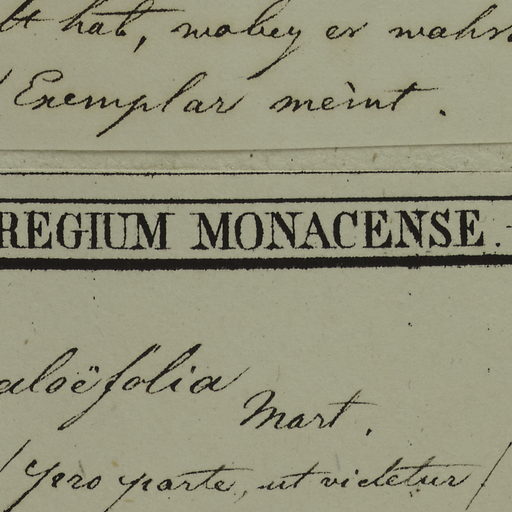 hat, wobey er
Exemplar meint.
REGIUM MONACENSE.
aloëfolia
Mart.
/ pro parte, ut videtur /